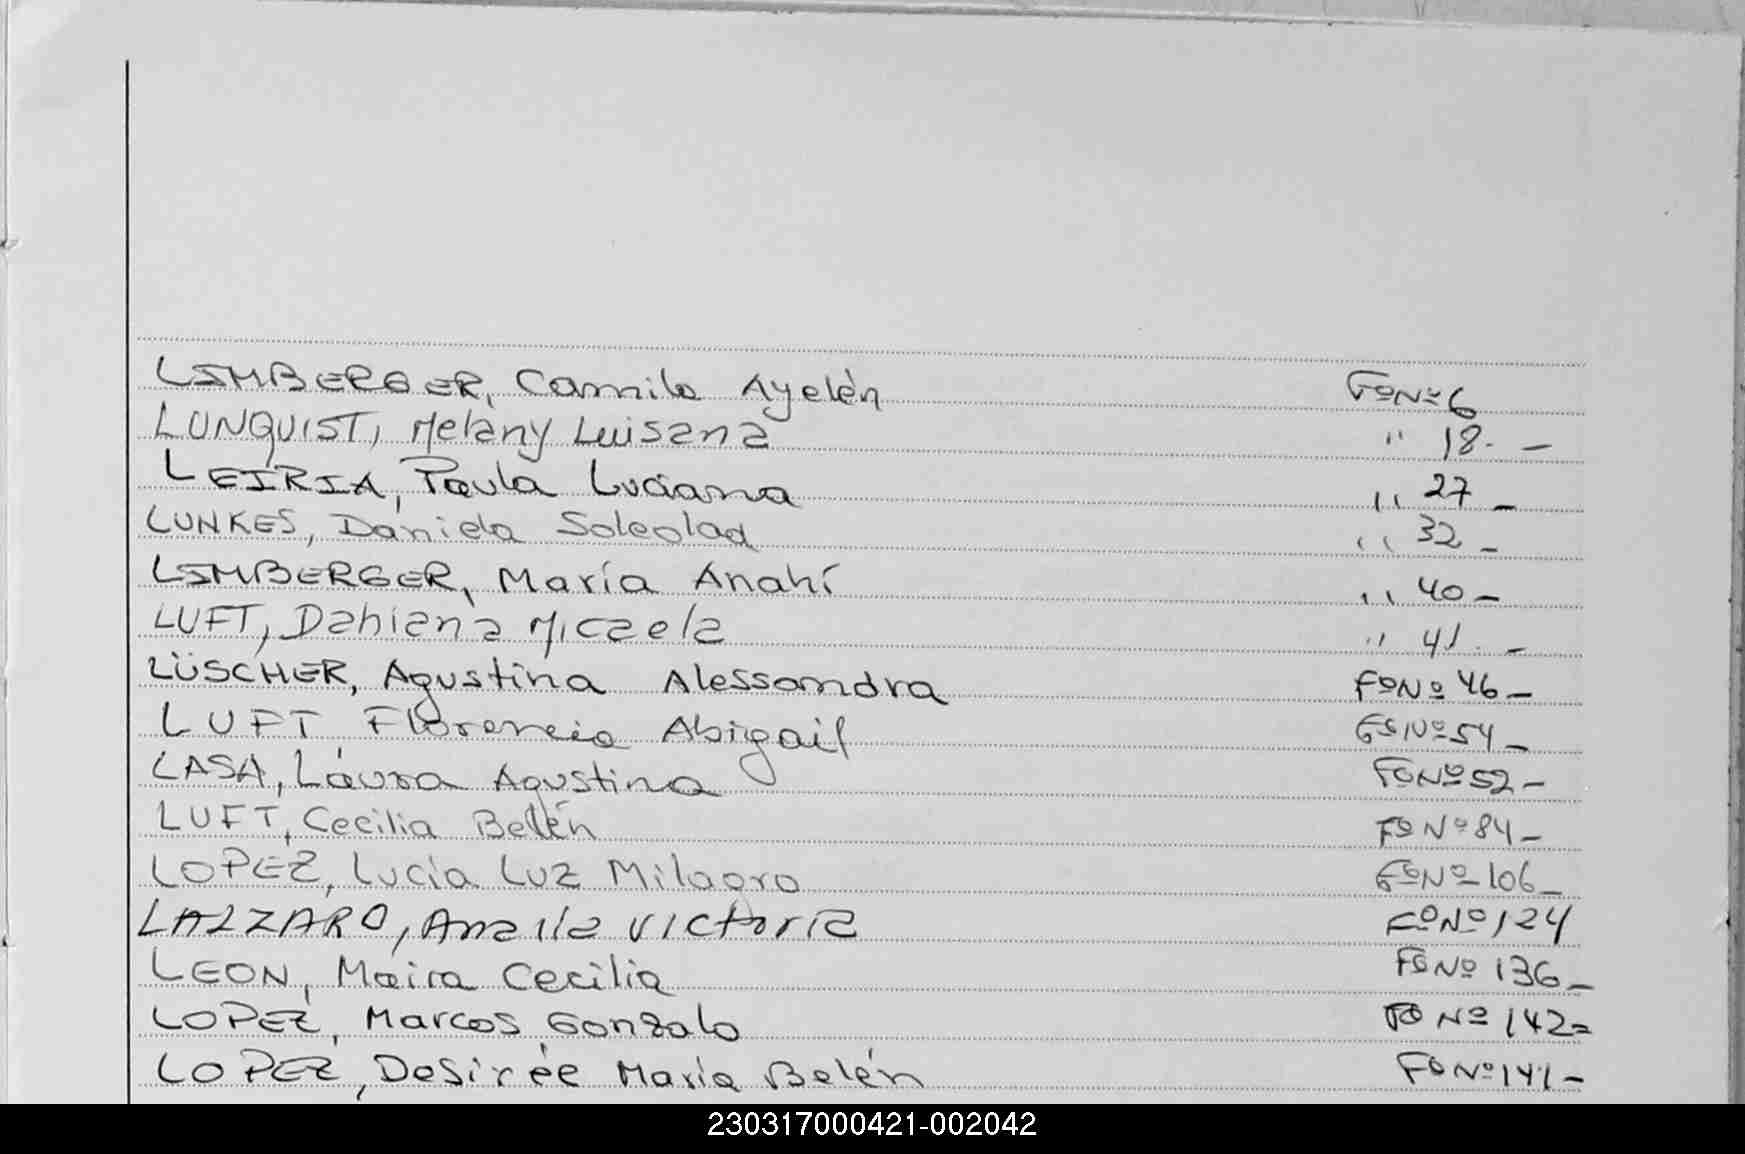 LIMBERGER, Camila Ayelén Fº Nº 6
LUNQUIST, Melany Luisana " 18 -
LEIRIA, Paula Luciana " 27 -
LUNKES, Daniela Soledad " 32 -
LIMBERGER, María Anahí " 40 -
LUFT, Dahiana Micaela " 41 -
LÜSCHER, Agustina Alessandra Fº Nº 46 -
LUFT Florencia Abigail Fº Nº 54 -
LASA, Laura Agustina Fº Nº 52 -
LUFT, Cecilia Belén Fº Nº 84 -
LOPEZ, Lucía Luz Milagro Fº Nº 106 -
LAZZARO, Victoria Fº Nº 124
LEON, Maira Cecilia Fº Nº 136 -
LOPEZ, Marcos Gonzalo Fº Nº 142 =
LOPEZ, Desirée María Belén Fº Nº 141 -
230317000421-002042